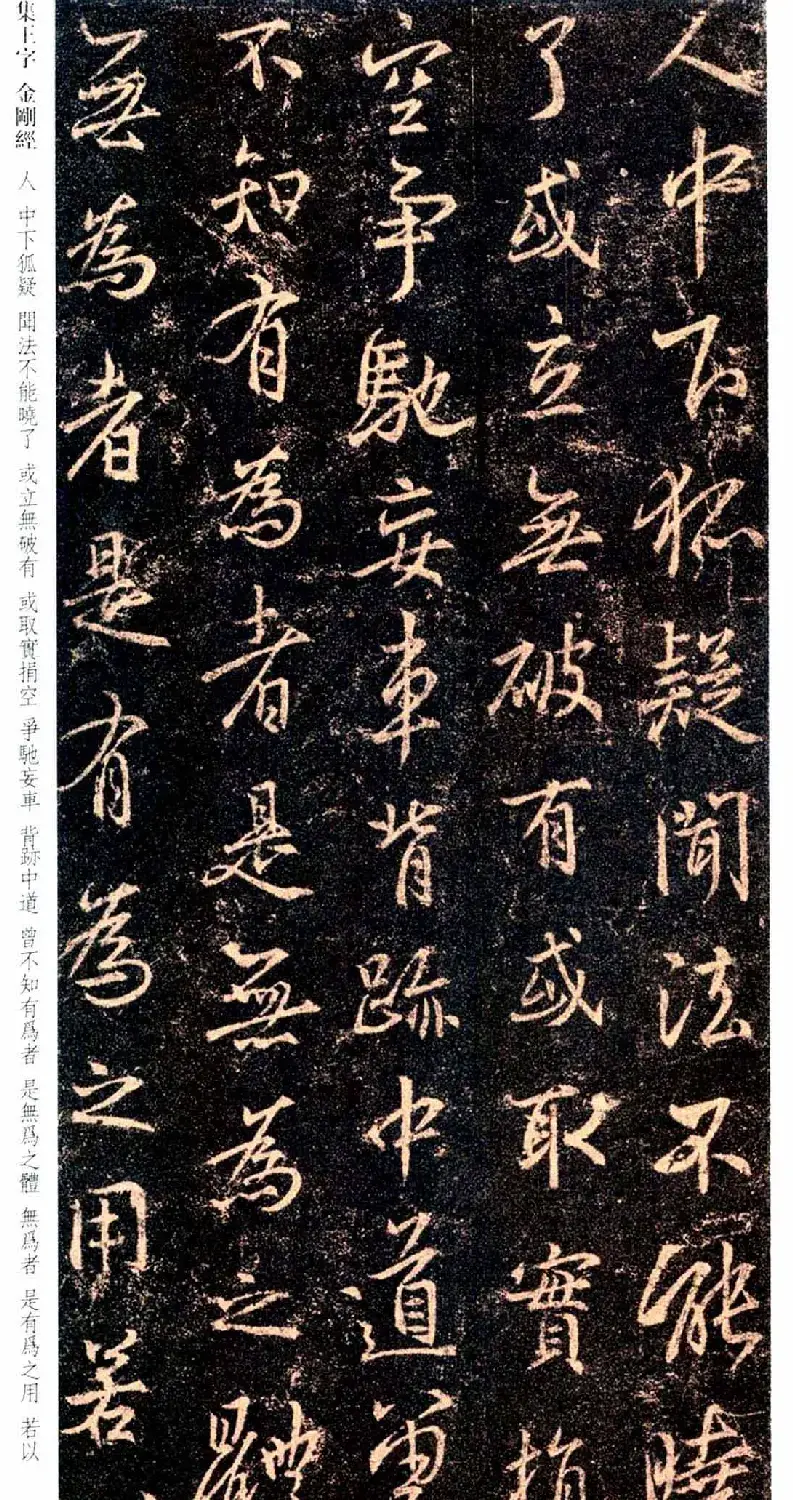 人中下狐疑聞法不能曉
了或立無破有或取實捐
空爭馳妄車背跡中道曾
不知有為者是無為之體
無為者是有為之用若
集王字 金剛經 人 中下狐疑 聞法不能曉了 或立無破有 或取實捐空 爭馳妄車 背跡中道 曾不知有爲者 是無爲之體 無爲者 是有爲之用 若以